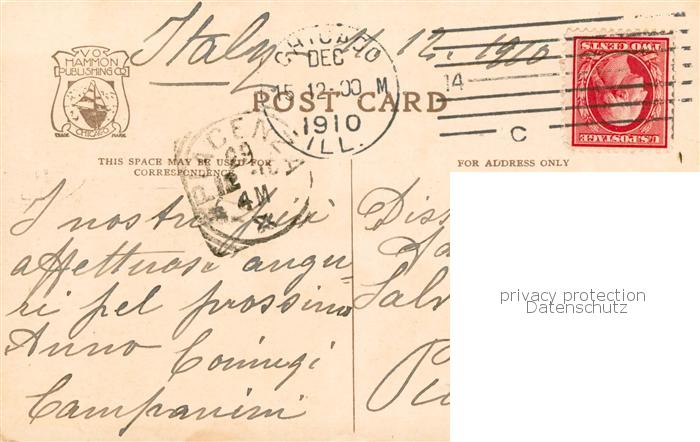 Italy 14. 12. 1910
V.O.
HAMMON
PUBLISHING CO
CHICAGO
TRADE MARK
CHICAGO
DEC
15 12-00 M
1910
ILL.
14
C
TWO CENTS
U.S. POSTAGE
POST CARD
PIACENZA
29
12 10
4 M
THIS SPACE MAY BE USED FOR
CORRESPONDENCE
FOR ADDRESS ONLY
I nostri più
affettuosi augu-
ri pel prossimo
Anno Coniugi
Campanini
privacy protection
Datenschutz